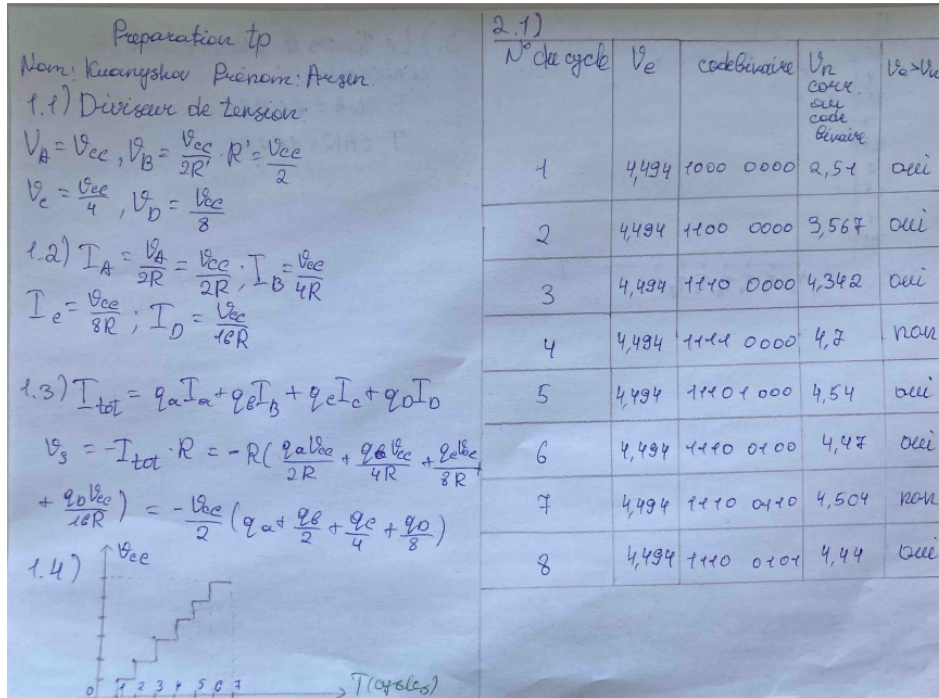 Preparation tp
Nom: Kuanyshov Prénom: Arsen.
1.1) Diviseur de tension:
V_A = V_cc, V_B = V_cc/2R' · R' = V_cc/2
V_c = V_cc/4, V_D = V_cc/8
1.2) I_A = V_A/2R = V_cc/2R; I_B = V_cc/4R
I_c = V_cc/8R; I_D = V_cc/16R
1.3) I_tot = q_a I_a + q_b I_B + q_c I_c + q_D I_D
V_s = -I_tot · R = -R(q_a V_cc/2R + q_b V_cc/4R + q_c V_cc/8R
+ q_D V_cc/16R) = -V_cc/2 (q_a + q_b/2 + q_c/4 + q_D/8)
1.4) V_cc
0 1 2 3 4 5 6 7 T(cycles)
2.1)
N° du cycle V_e code binaire V_n corr. au code binaire V_e>V_n
1 4,494 1000 0000 2,51 oui
2 4,494 1100 0000 3,567 oui
3 4,494 1110 0000 4,342 oui
4 4,494 1111 0000 4,7 non
5 4,494 11101 000 4,54 oui
6 4,494 1110 0100 4,47 oui
7 4,494 1110 0110 4,504 non
8 4,494 1110 0101 4,44 oui